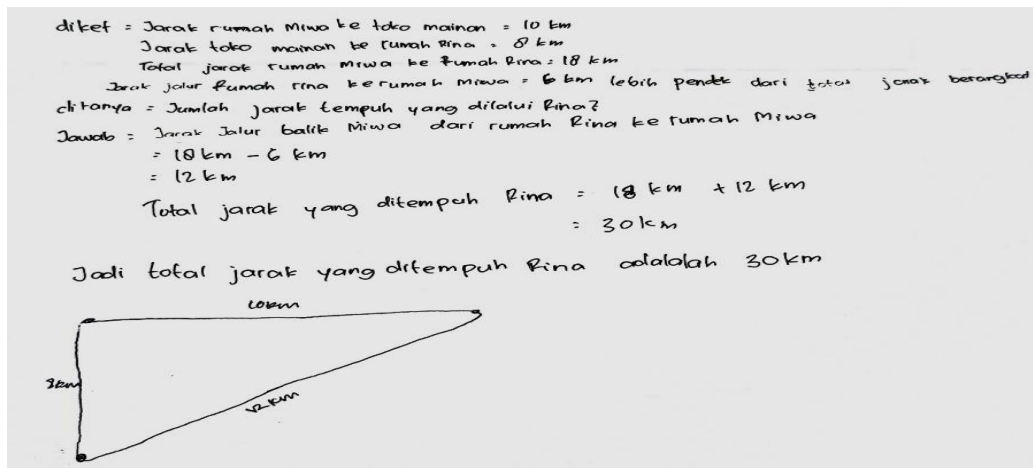 diket = Jarak rumah Miwa ke toko mainan = 10 km
Jarak toko mainan ke rumah Rina = 8 km
Total jarak rumah Miwa ke Rumah Rina = 18 km
Jarak jalur Rumah rina kerumah miwa = 6 km lebih pendek dari total jarak berangkat
ditanya = Jumlah jarak tempuh yang dilalui Rina?
Jawab = Jarak Jalur balik Miwa dari rumah Rina ke rumah Miwa
= 18 km - 6 km
= 12 km
Total jarak yang ditempuh Rina = 18 km + 12 km
= 30 km
Jadi total jarak yang ditempuh Rina adalalah 30 km
10km
8km
12 km